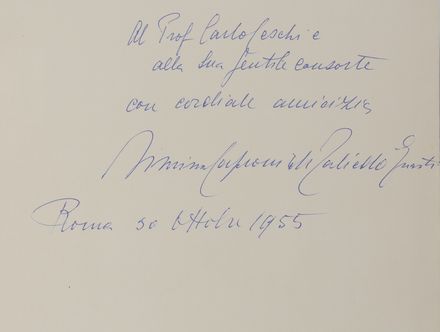 Al Prof Carlo Ceschi e
alla Sua gentile consorte
con cordiale amicizia
Roma 30 Ottobre 1955